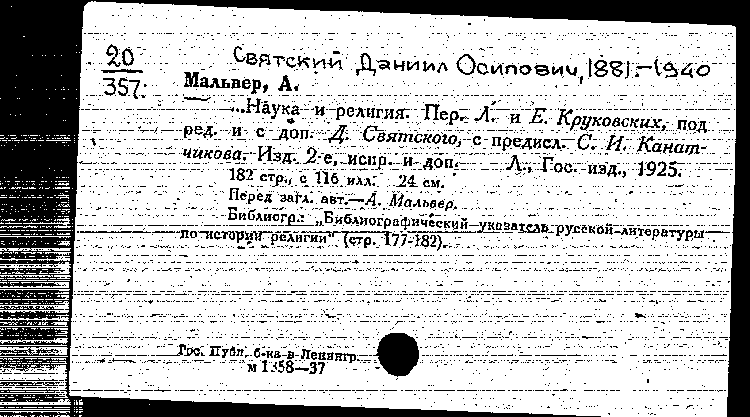 20
357.
Святский Даниил Осипович, 1881–1940
Мальвер, А.
...Наука и религия. Пер. Л. и Е. Круковских, под
ред. и с доп. Д. Святского, с предисл. С. И. Канат-
чикова. Изд. 2-е, испр. и доп. Л., Гос. изд., 1925.
182 стр., с 116 илл. 24 см.
Перед загл. авт.—А. Мальвер.
Библиогр.: „Библиографический указатель русской литературы
по истории религии" (стр. 177-182).
Гос. Публ. б-ка в Ленингр.
м 1358—37